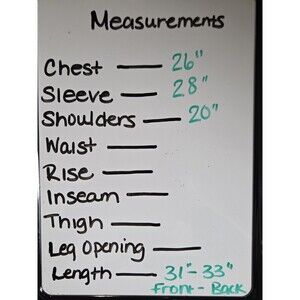 Measurements
Chest — 26"
Sleeve — 28"
Shoulders — 20"
Waist —
Rise —
Inseam —
Thigh —
Leg Opening —
Length — 31"- 33"
Front - Back